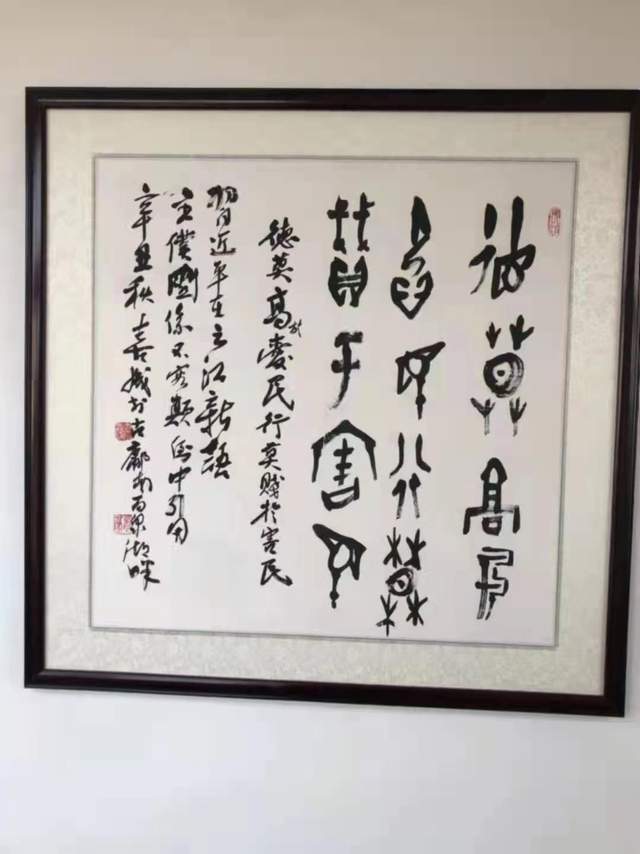 德莫高於
愛民行莫
賤於害民
德莫高於愛民行莫賤於害民
習近平在之江新語
主僕關係不容顛倒中引用
辛丑秋喜於古南百泉湖畔